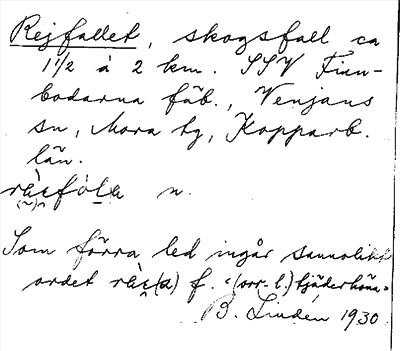 Rejfallet, skogsfall ca
1 1/2 à 2 km. SSV Finn-
bodarna fäb., Venjans
sn, Mora tg, Kopparb.
län.
n.
Som förra led ingår sannolikt
ordet f. "(orr- l.) tjäderhöna".
B. Linden 1930.